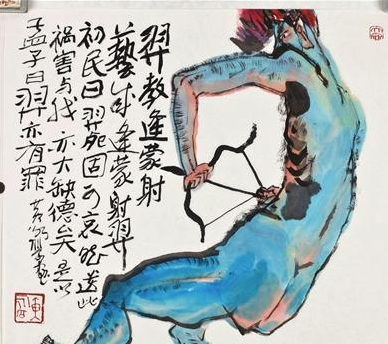 羿教逢蒙射
藝成逢蒙射羿
初民曰羿死固可哀然遺此
禍害与我亦大缺德矣是以
孟子曰羿亦有罪